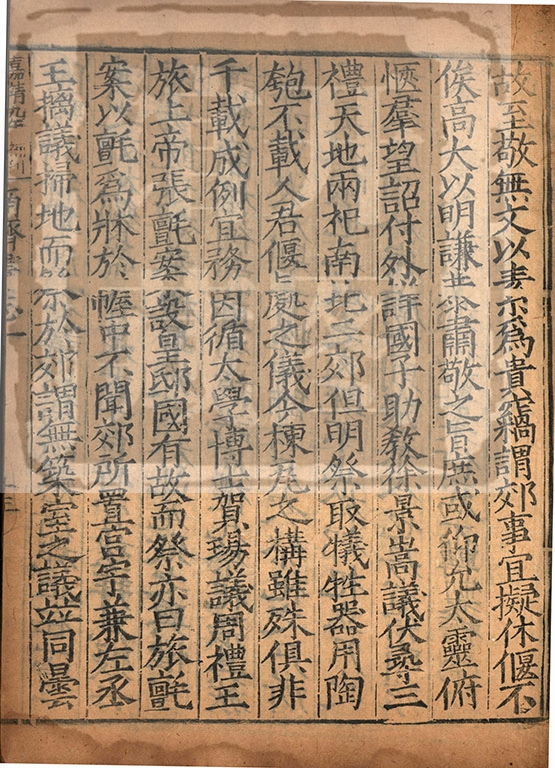 故至敬無文以素為貴竊謂郊事宜擬休偃不
俟高大以明謙恭肅敬之旨庶或仰允太靈俯
愜羣望詔付外詳國子助教徐景嵩議伏尋三
禮天地兩祀南北二郊但明祭取犧牲器用陶
匏不載人君偃處之儀今棟瓦之構雖殊俱非
千載成例宜務因循太學博士賀瑒議周禮王
旅上帝張氊案設皇邸國有故而祭亦曰旅氊
案以氊為牀於幄中不聞郊所置宮宇兼左丞
王摛議掃地而祭於郊謂無築室之議並同曇